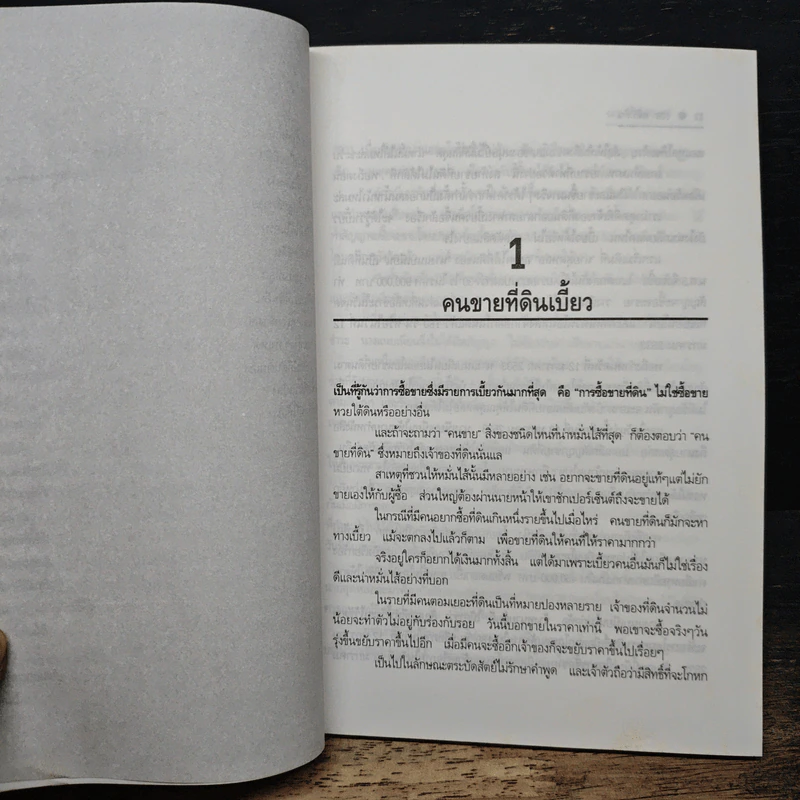 1
คนขายที่ดินเบี้ยว
เป็นที่รู้กันว่าการซื้อขายซึ่งมีรายการเบี้ยวกันมากที่สุด คือ "การซื้อขายที่ดิน" ไม่ใช่ซื้อขาย
หวยใต้ดินหรืออย่างอื่น
และถ้าจะถามว่า "คนขาย" สิ่งของชนิดไหนที่น่าหมั่นไส้ที่สุด ก็ต้องตอบว่า "คน
ขายที่ดิน" ซึ่งหมายถึงเจ้าของที่ดินนั่นแล
สาเหตุที่ชวนให้หมั่นไส้นั้นมีหลายอย่าง เช่น อยากจะขายที่ดินอยู่แท้ๆแต่ไม่ยัก
ขายเองให้กับผู้ซื้อ ส่วนใหญ่ต้องผ่านนายหน้าให้เขาชักเปอร์เซ็นต์ถึงจะขายได้
ในกรณีที่มีคนอยากซื้อที่ดินเกินหนึ่งรายขึ้นไปเมื่อไหร่ คนขายที่ดินก็มักจะหา
ทางเบี้ยว แม้จะตกลงไปแล้วก็ตาม เพื่อขายที่ดินให้คนที่ให้ราคามากกว่า
จริงอยู่ใครก็อยากได้เงินมากทั้งสิ้น แต่ได้มาเพราะเบี้ยวคนอื่นมันก็ไม่ใช่เรื่อง
ดีและน่าหมั่นไส้อย่างที่บอก
ในรายที่มีคนตอมเยอะที่ดินเป็นที่หมายปองหลายราย เจ้าของที่ดินจำนวนไม่
น้อยจะทำตัวไม่อยู่กับร่องกับรอย วันนี้บอกขายในราคาเท่านี้ พอเขาจะซื้อจริงๆวัน
รุ่งขึ้นขยับราคาขึ้นไปอีก เมื่อมีคนจะซื้ออีกเจ้าของก็จะขยับราคาขึ้นไปเรื่อยๆ
เป็นไปในลักษณะตระบัดสัตย์ไม่รักษาคำพูด และเจ้าตัวถือว่ามีสิทธิ์ที่จะโกหก